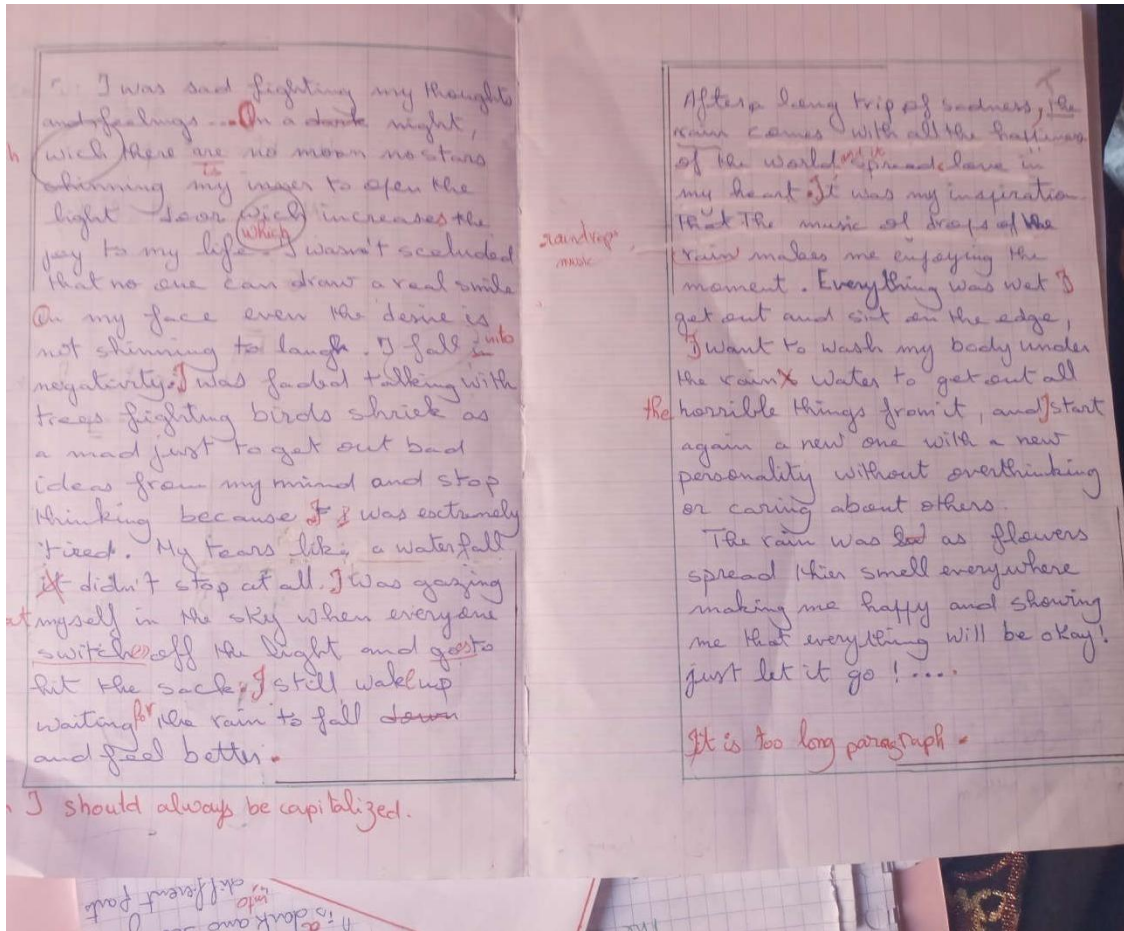 I was sad fighting my thoughts
and feelings ... On a dark night,
wich there are no moon no stars
is
shinning my inner to open the
light door wich increases the
which
joy to my life. I wasn't secluded
that no one can draw a real smile
On my face even the desire is
not shinning to laugh. I fall in into
negativity. I was faded talking with
trees fighting birds shriek as
a mad just to get out bad
ideas from my mind and stop
thinking because I was esctremely
tired. My tears like a waterfall
it didn't stop at all. I was gazing
at myself in the sky when everyone
switches off the light and goes to
hit the sack, I still wake up
waiting for the rain to fall down
and feel better.
I should always be capitalized.
After a long trip of sadness, the
rain comes with all the happiness
of the world and it spreads love in
my heart. It was my inspiration
that The music of drops of the
raindrops music
rain makes me enjoying the
moment. Everything was wet I
get out and sit on the edge,
I want to wash my body under
the rain water to get out all
the horrible things from it, and I start
again a new one with a new
personality without overthinking
or caring about others.
The rain was as flowers
spread thier smell everywhere
making me happy and showing
me that everything will be okay!
just let it go ! ....
It is too long paragraph.
different parts
into
is dark and
The